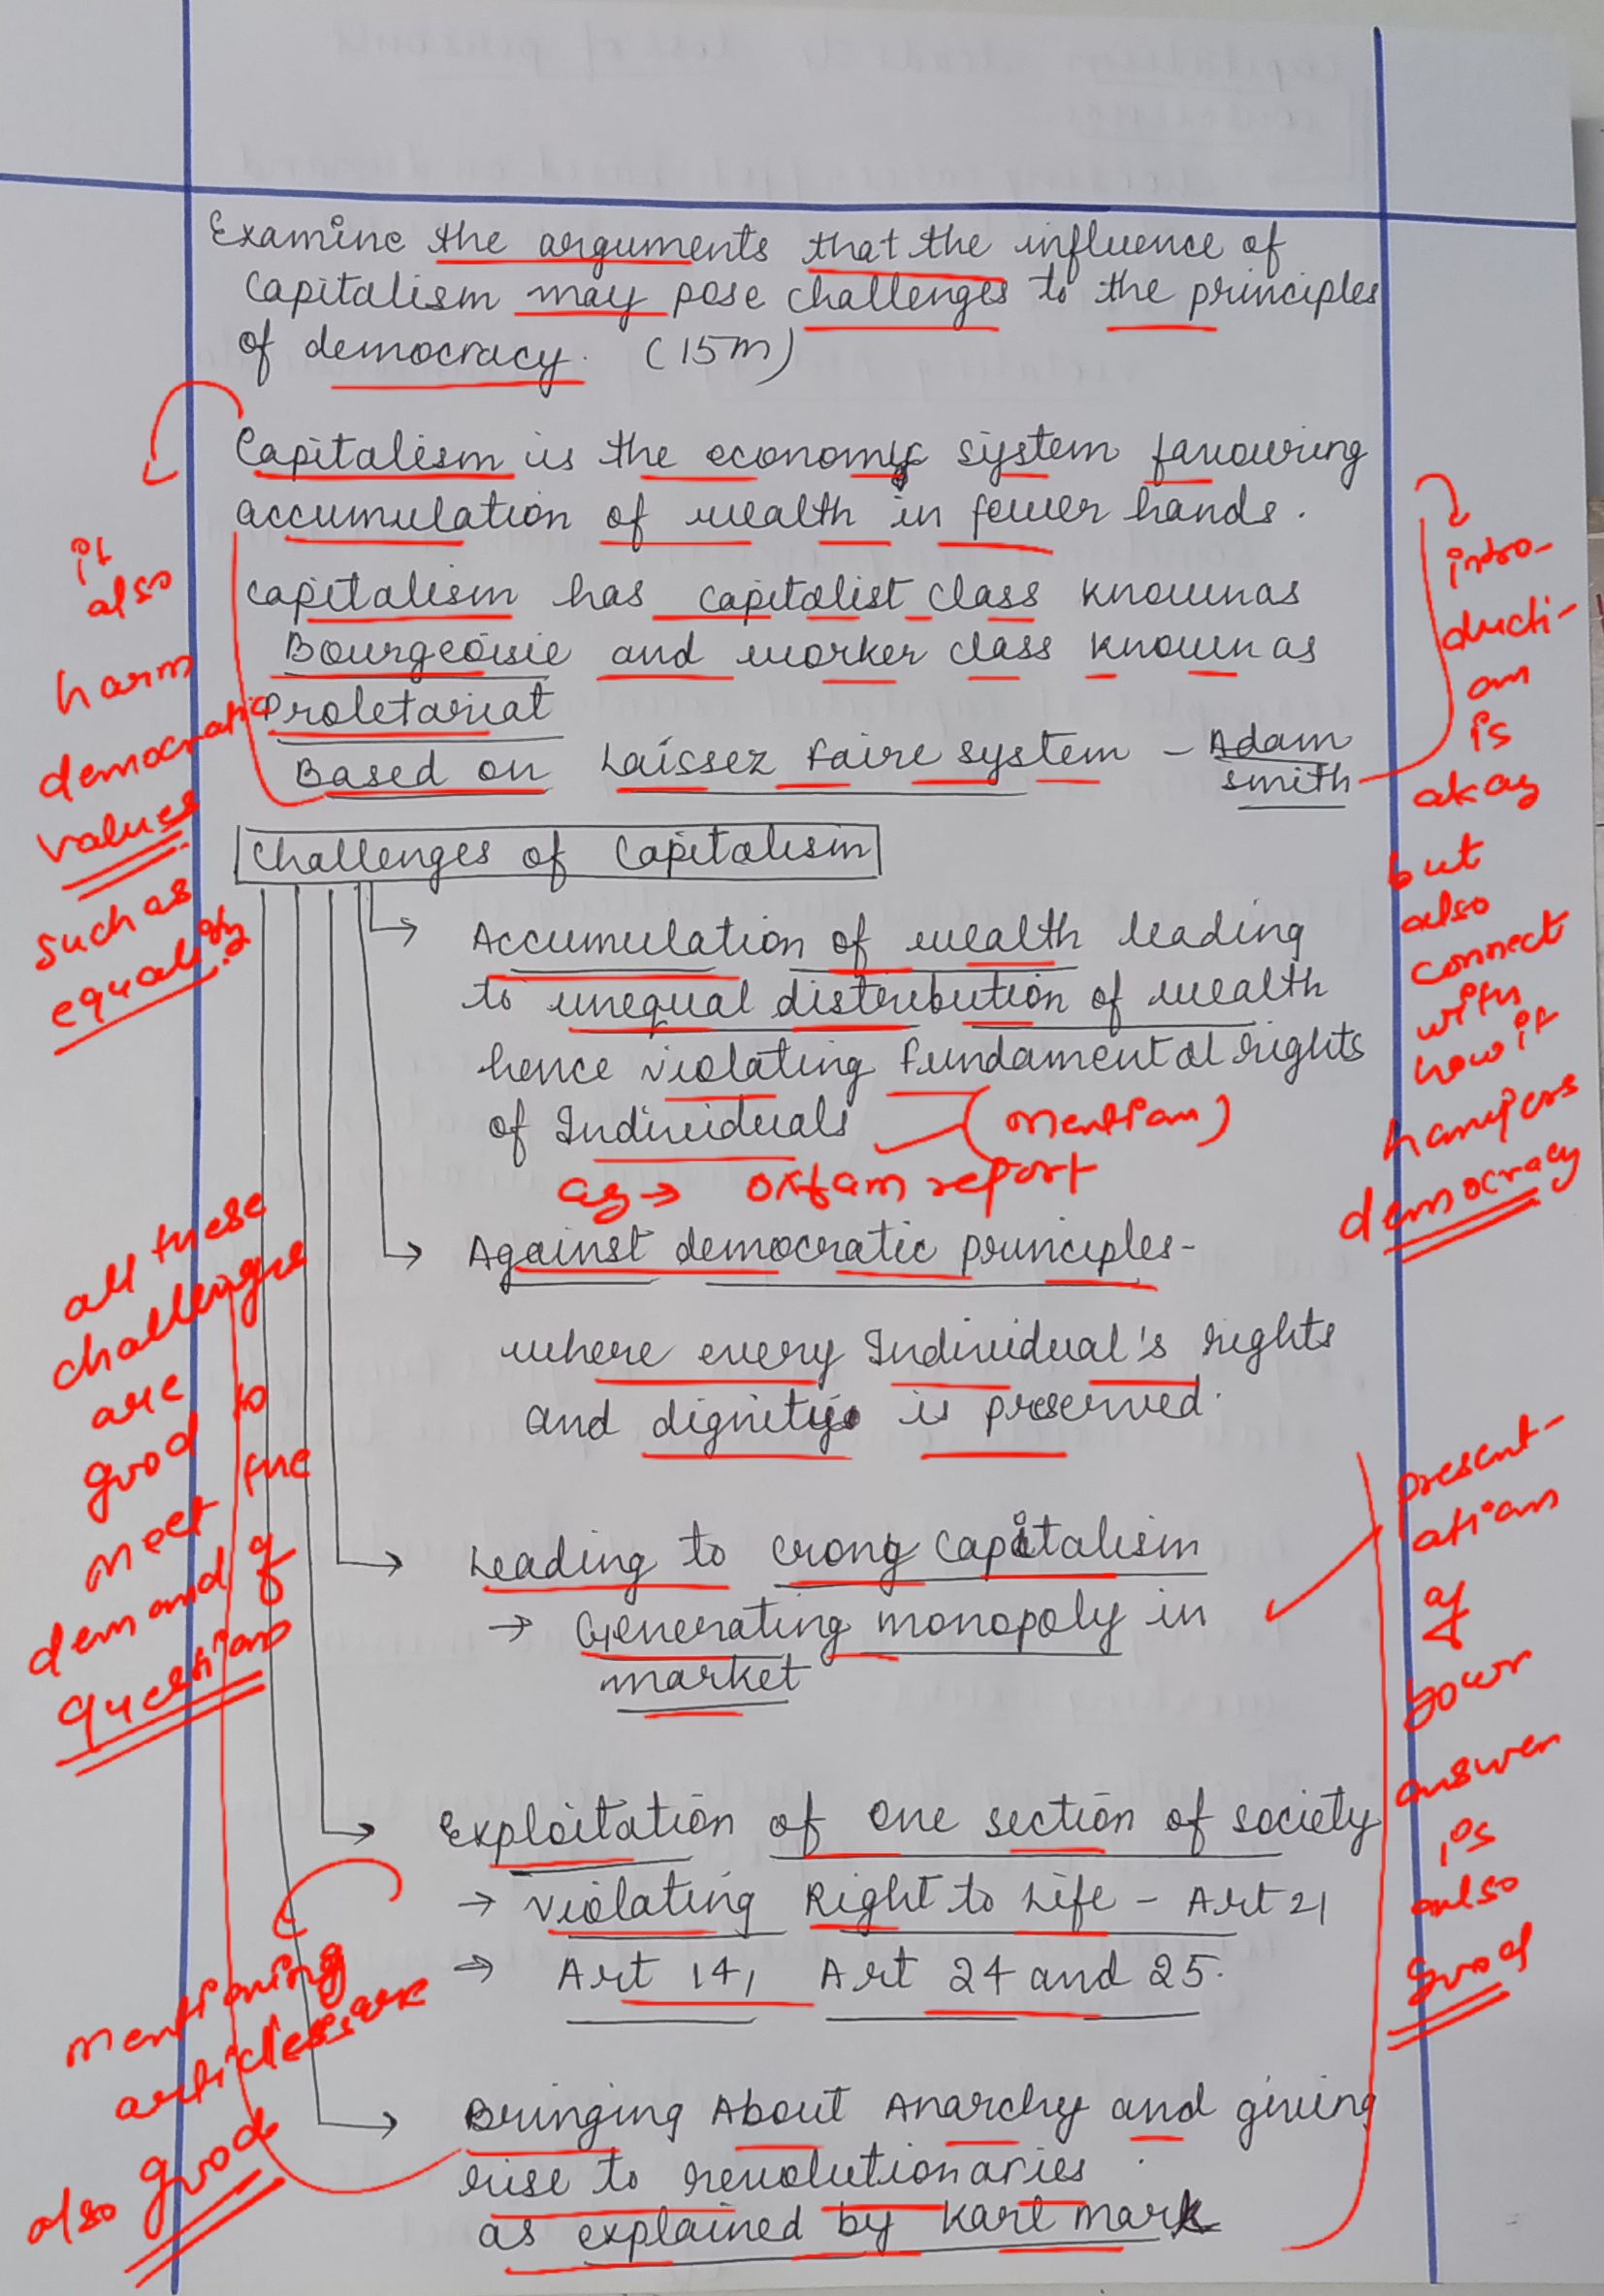 Examine the arguments that the influence of
Capitalism may pose challenges to the principles
of democracy. (15m)
Capitalism is the economic system favouring
accumulation of wealth in fewer hands.
Capitalism has capitalist class known as
Bourgeoisie and worker class known as
Proletariat
Based on Laissez Faire system - Adam
smith
it
also
harm
democratic
values
such as
equality
intro-
ducti-
on
is
okay
but
also
connect
with
how it
hampers
democracy
Challenges of Capitalism
Accumulation of wealth leading
to unequal distribution of wealth
hence violating fundamental rights
of Individuals
(mention)
eg → oxfam report
Against democratic principles-
where every Individual's rights
and dignity is preserved.
all these
challenges
are
good to
meet the
demand of
questions
Leading to crony capitalism
→ Generating monopoly in
market
present-
ation
of
your
answer
is
also
good
Exploitation of one section of society
→ violating Right to Life - Art 21
→ Art 14, Art 24 and 25.
mentioning
articles are
also good
Bringing About Anarchy and giving
rise to revolutionaries
as explained by Karl mark